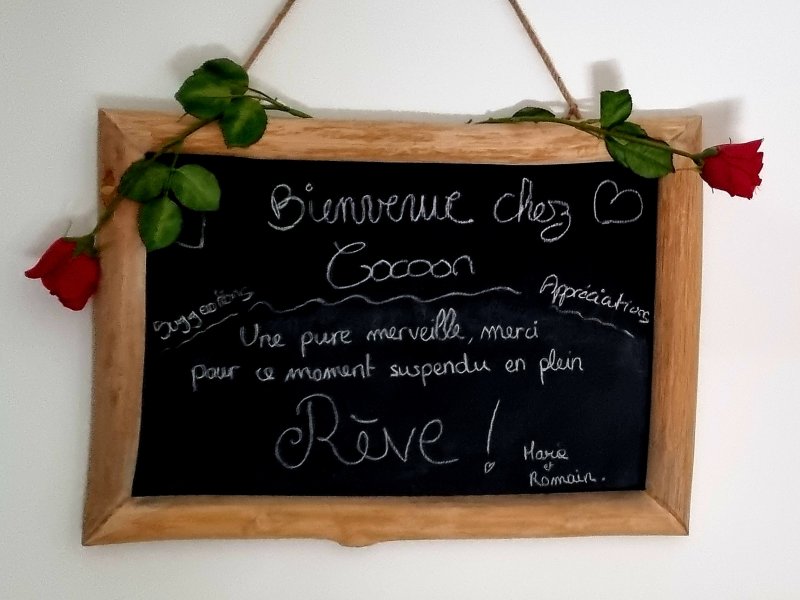 Bienvenue chez
Cocoon
Suggestions
Appréciations
Une pure merveille, merci
pour ce moment suspendu en plein
Rêve !
Marie
et
Romain.